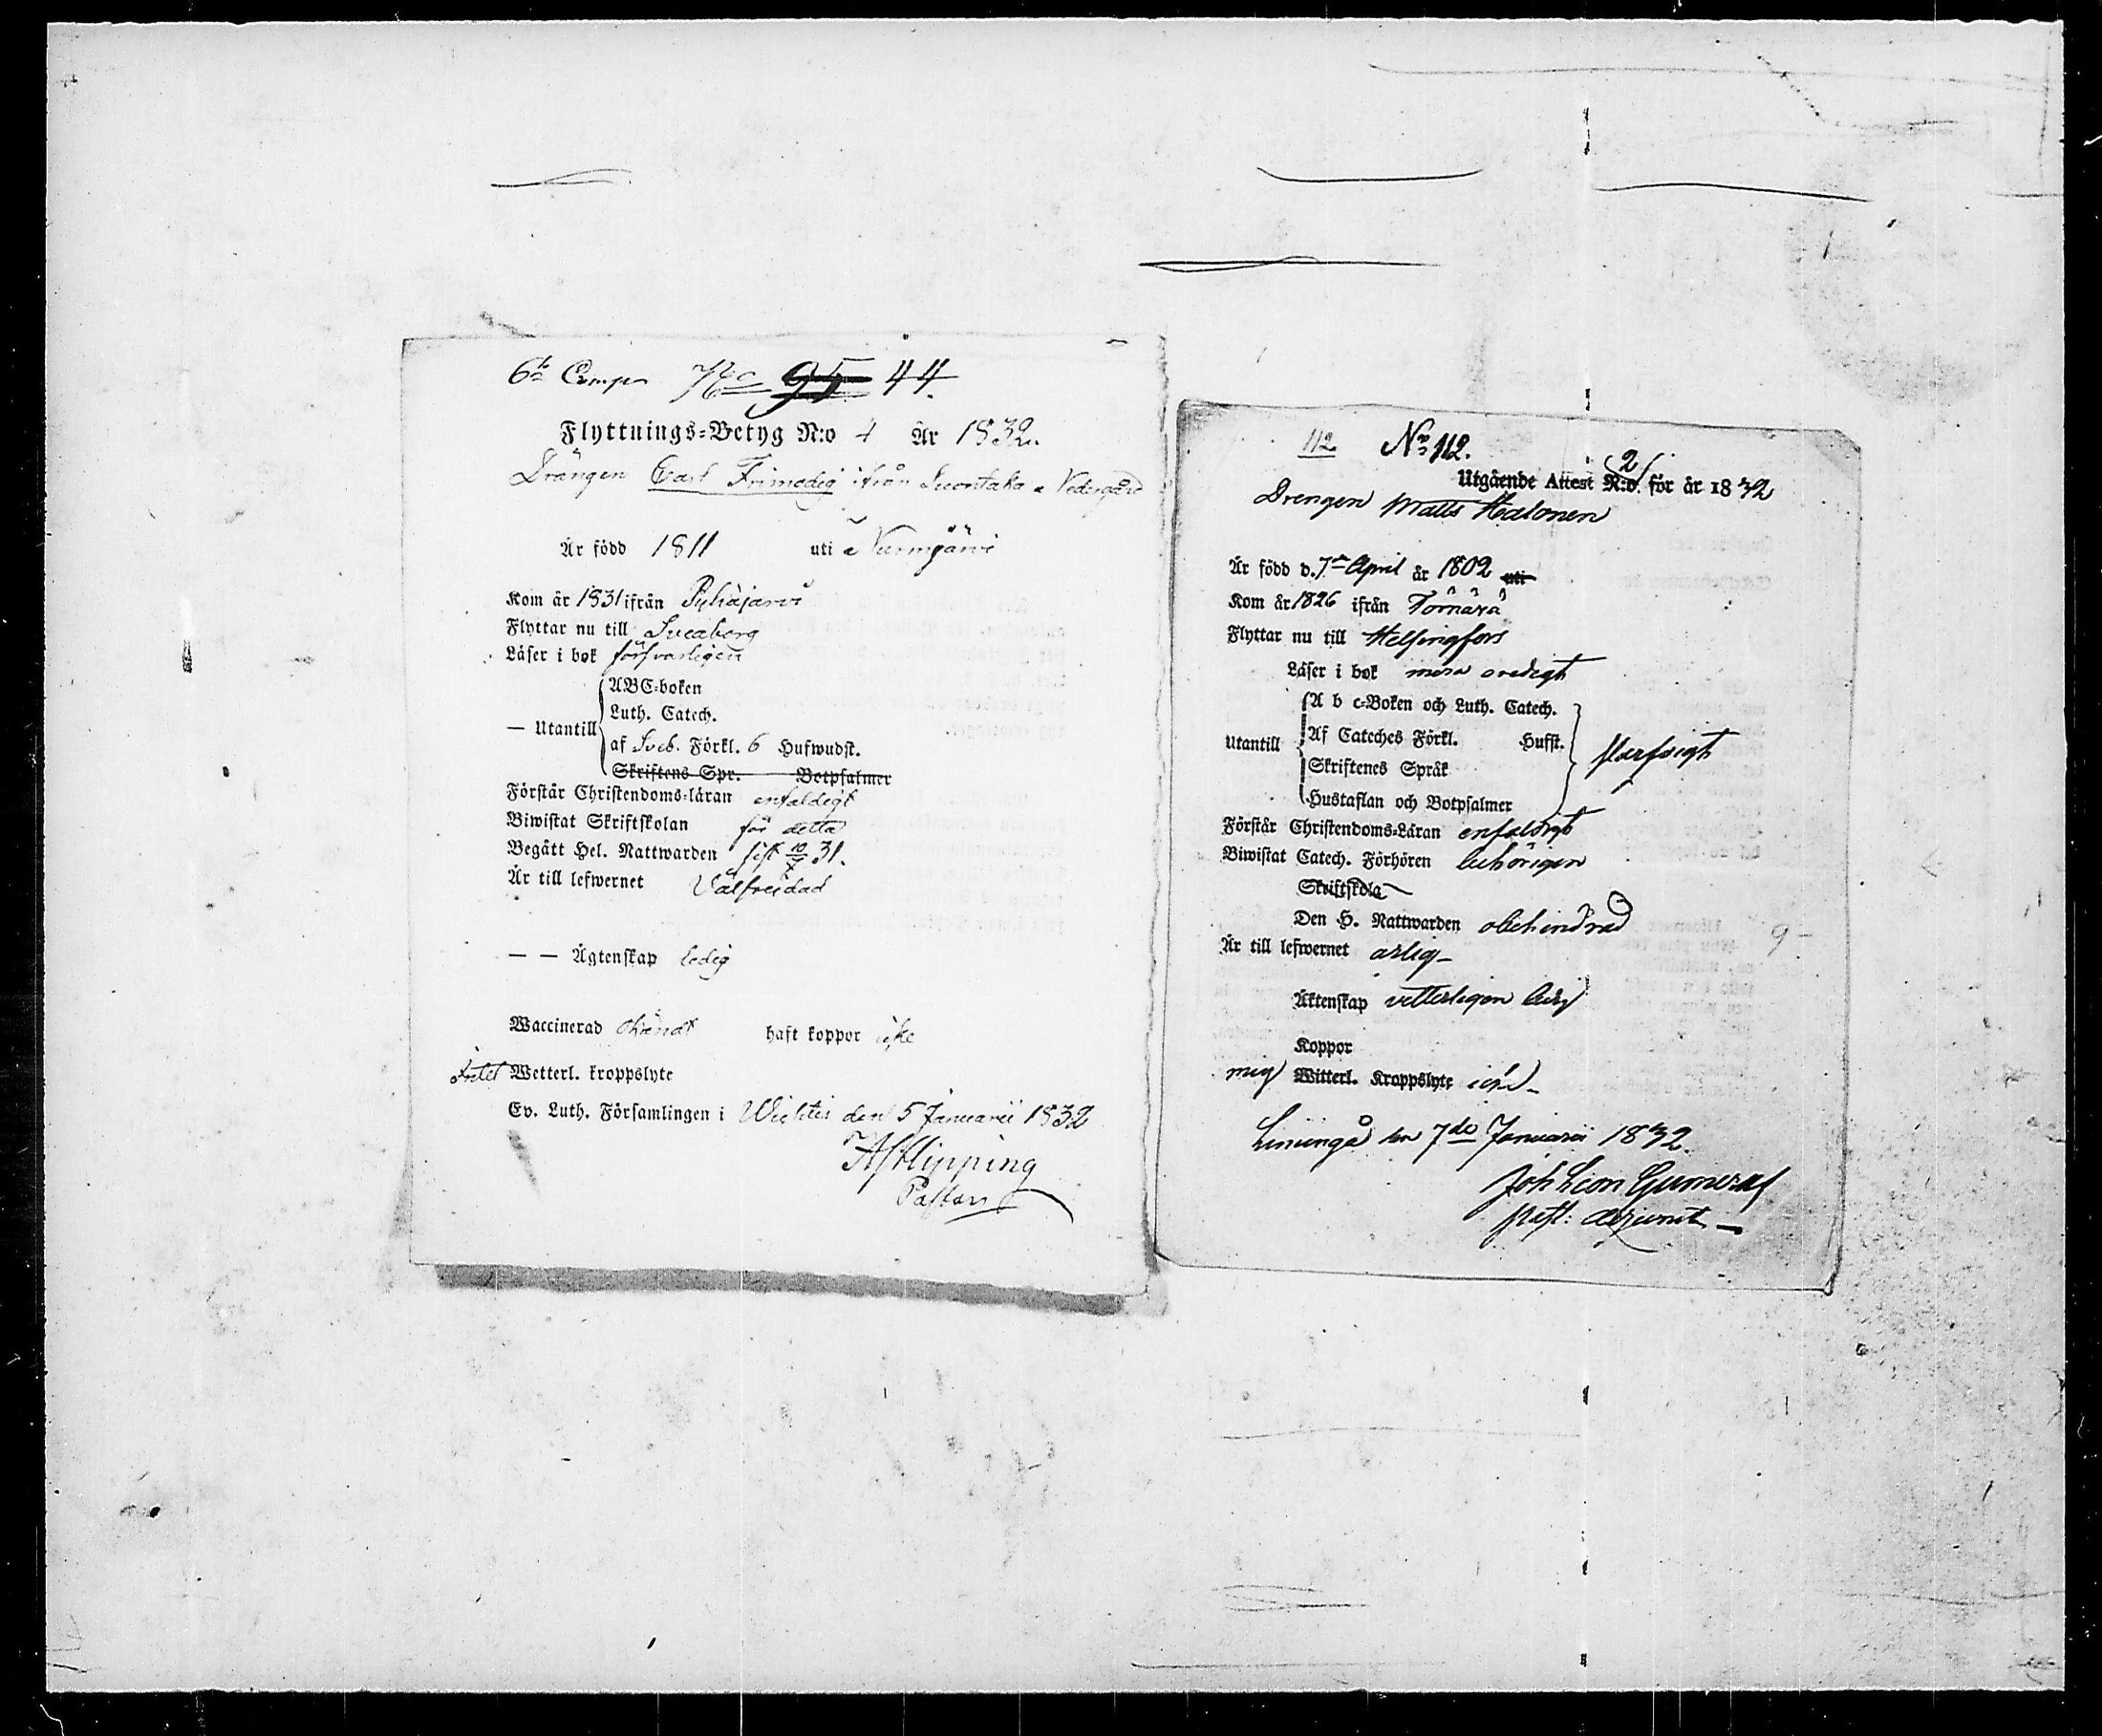 6te Comp 76 95 44.
Flyttnings=Betyg N:o 4 År 1832.
Drängen Carl Frimodig ifrån Suontaka Nedergård
Är född 1811 uti Nurmijärvi
Kom år 1831 ifrån Pyhäjärvi
Flyttar nu till Sveaborg
Läser i bok försvarligen
— Utantill
ABC=boken
Luth. Catech.
af Sveb. Förkl. 6 Hufwudst.
Skriftens Spr. Botpsalmer
Förstår Christendoms=läran enfaldigt
Biwistat Skriftskolan för detta
Begått Hel. Nattwarden sist 10/7 31.
Är till lefwernet Välfrejdad
— — Ägtenskap ledig
Waccinerad okändt haft koppor icke
Intet Wetterl. kroppslyte
Ev. Luth. Församlingen i Wichtis den 5 Januarii 1832
Hipping
Pastor
112 No 112.
Utgående Attest N:o. 2 för år 1832
Drengen Matts Halonen
Är född d. 7de April år 1802 uti
Kom år 1826 ifrån Törnävä
Flyttar nu till Helsingfors
Läser i bok mera oredigt
Utantill
A b c=Boken och Luth. Catech.
Af Cateches Förkl. Hufst.
Skriftenes Språk
Hustaflan och Botpsalmer
Förstår Christendoms=Läran enfaldigt
Biwistat Catech. Förhören behörigen
Skriftskola
Den H. Nattwarden obehindrad
Är till lefwernet ärlig —
Äktenskap vetterligen ledig
Koppor
mig Witterl. Kroppslyte
den 7de Januarii 1832.
Joh Leon
past: adjunct —